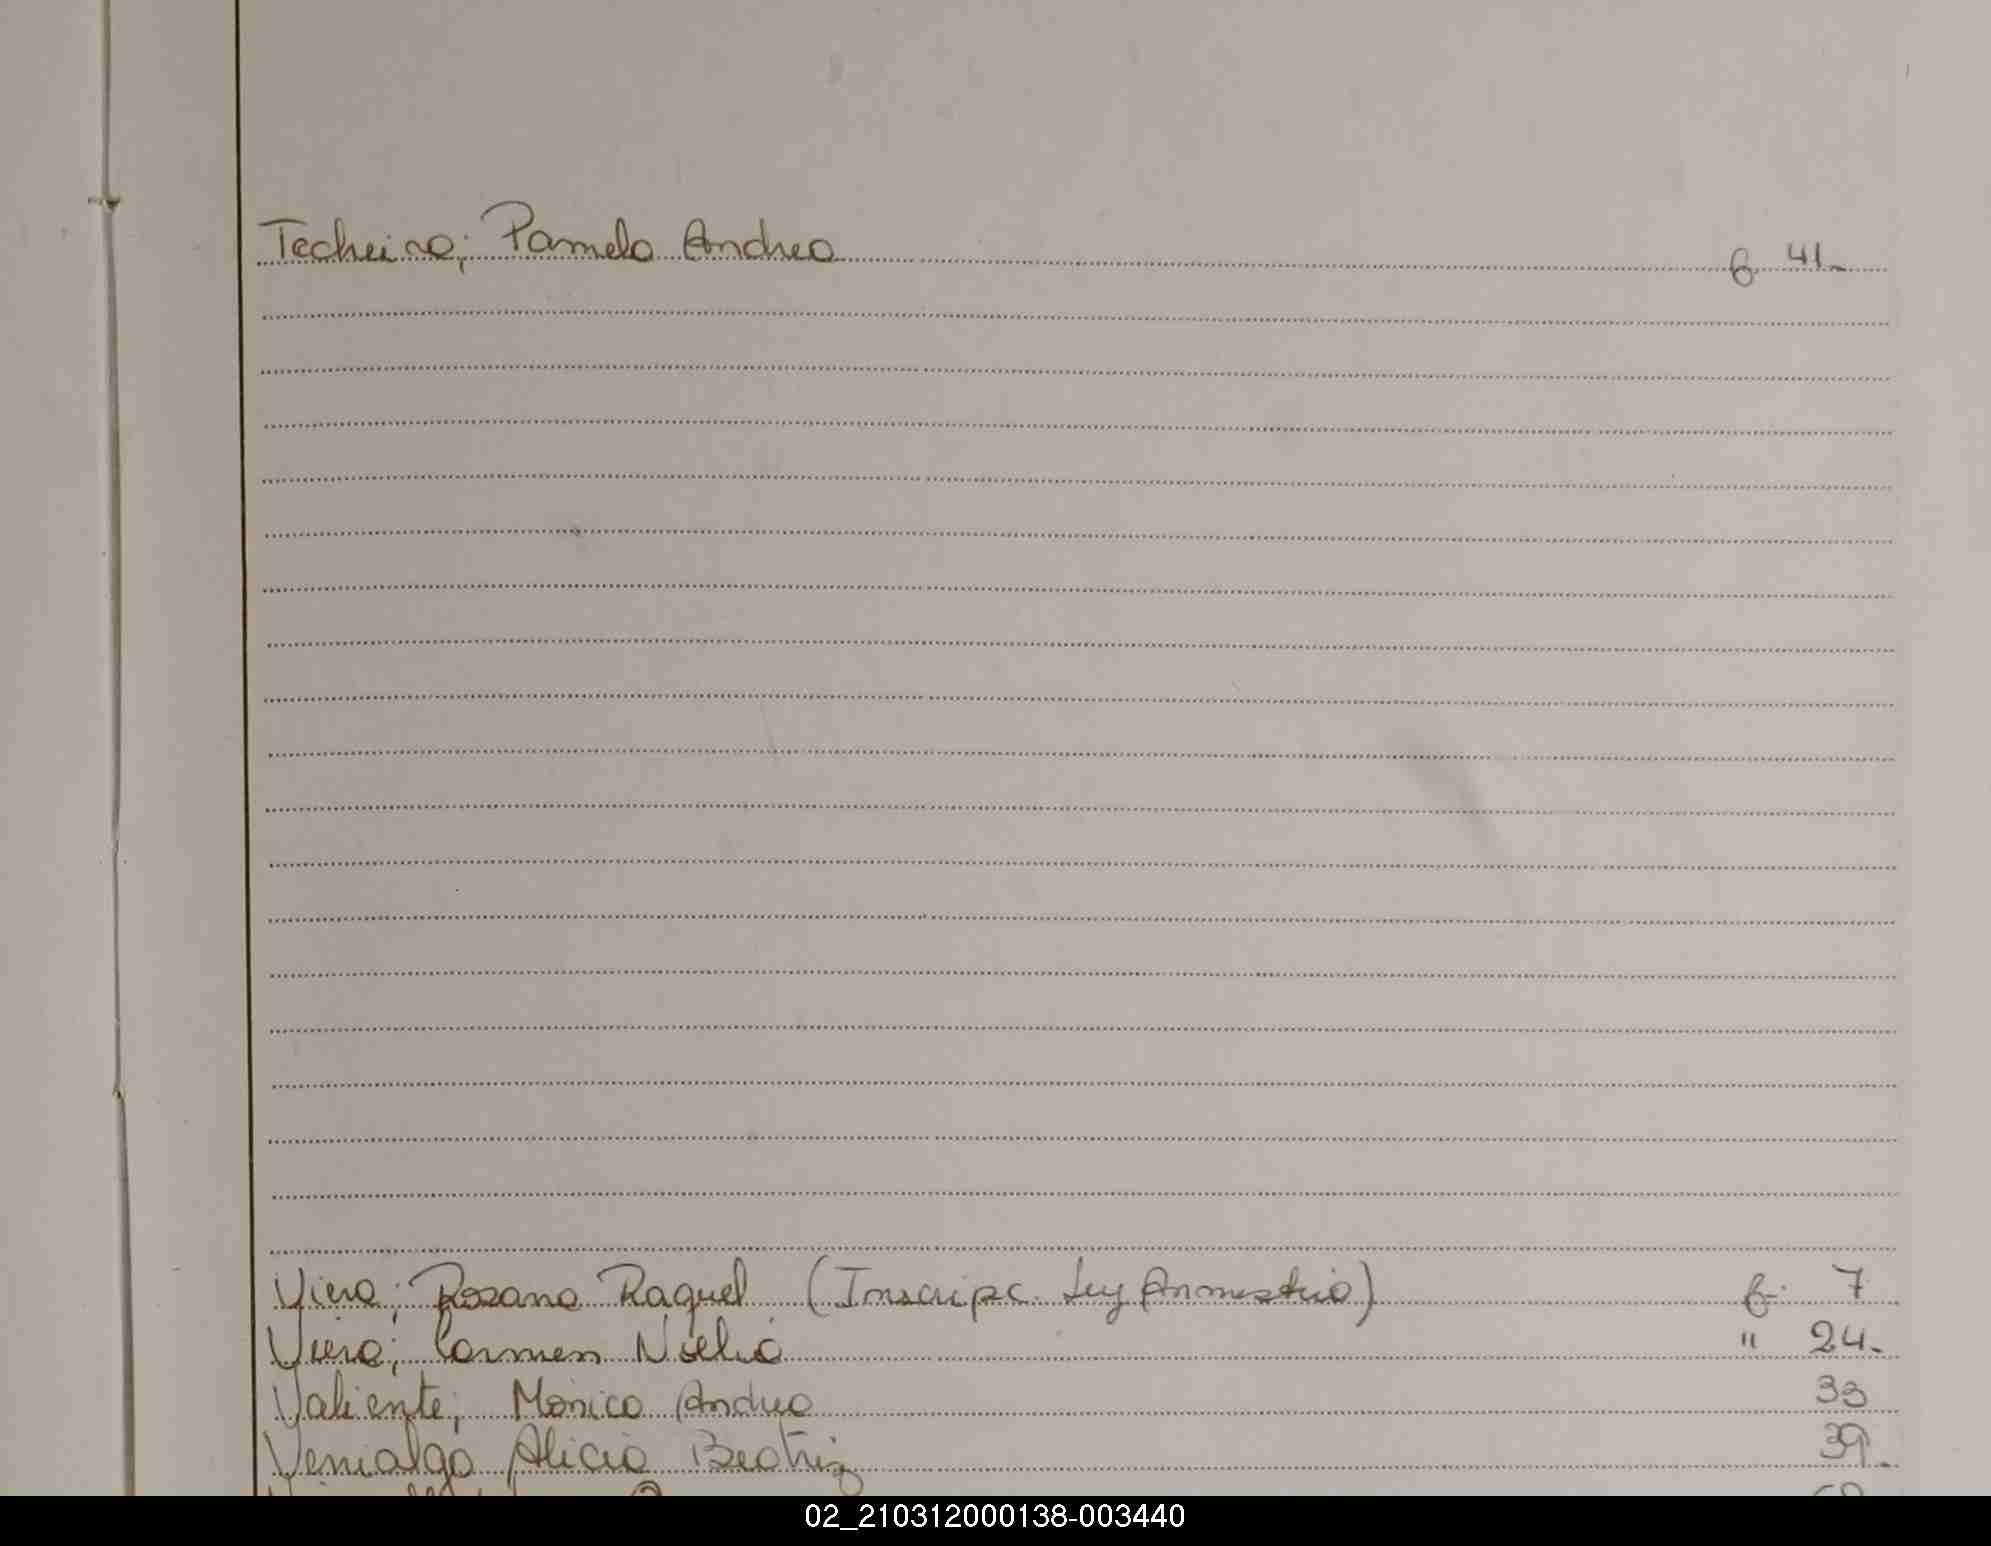 Techeira; Pamela Andrea f 41-
Viera; Rosana Raquel (Inscripc. Ley Anmestia) f. 7
Viera; Carmen Noelia " 24-
Valiente; Mónica Andrea 33
Venialgo Alicia Beatriz 39.
02_210312000138-003440